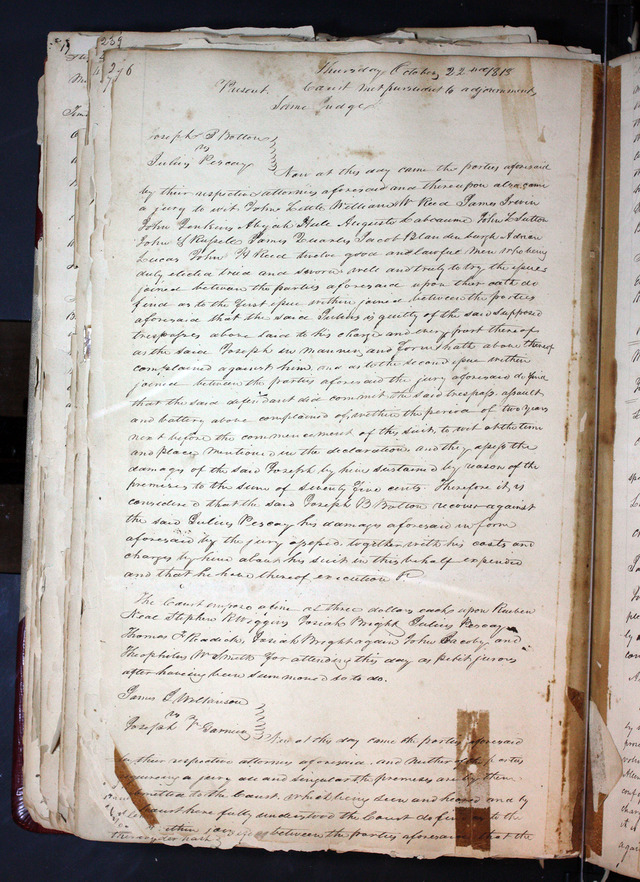 239
276
Thursday October 22nd 1818
Present Court met pursuant to adjournment
Same Judge
Joseph B Bolton
vs
Julius Pescay
Now at this day came the parties aforesaid
by their respective attornies aforesaid and thereupon also came
a jury to wit John Little William W Reed James Irwin
John Jenkins Abijah Hull Auguste Labeaume John L Sutton
John S Russell James Quarles Jacob Blandenburgh Adrien
Lucas John Reed twelve good and lawful men who being
duly elected tried and sworn well and truly to try the issues
joined between the parties aforesaid upon their oath do
find as to the first issue within joined between the parties
aforesaid that the said Julius is guilty of the said supposed
trespasses above laid to his charge and every part thereof
as the said Joseph in manner and form hath above thereof
complained against him, and as to the second issue within
joined between the parties aforesaid the jury aforesaid do find
that the said defendant did commit the said trespass, assault
and battery above complained of, within the period of two years
next before the commencement of this suit, to wit at the time
and place mentioned in the declaration and they assess the
damages of the said Joseph by him sustained by reason of the
premises to the sum of seventy five cents. Therefore it is
considered that the said Joseph B Bolton recover against
the said Julius Pescay his damages aforesaid in form
aforesaid by the jury assessed together with his costs and
charges by him about his suit in this behalf expended
and that he have thereof execution
The Court impose a fine of three dollars each upon Reuben
Neal Stephen R Wiggins Josiah Bright Julius Pescay
Thomas F Readick Josiah Bright again John Jacoby and
Theophilus W Smith for attending this day as petit jurors
after having been summoned so to do.
James P Wilkinson
vs
Joseph V Garnier
Now at this day came the parties aforesaid
by their respective attornies aforesaid and neither of the parties
requiring a jury all and singular the premises are by them
submitted to the Court, which being seen and heard and by
the Court here fully understood the Court do find as to the
issue within joined between the parties aforesaid that the